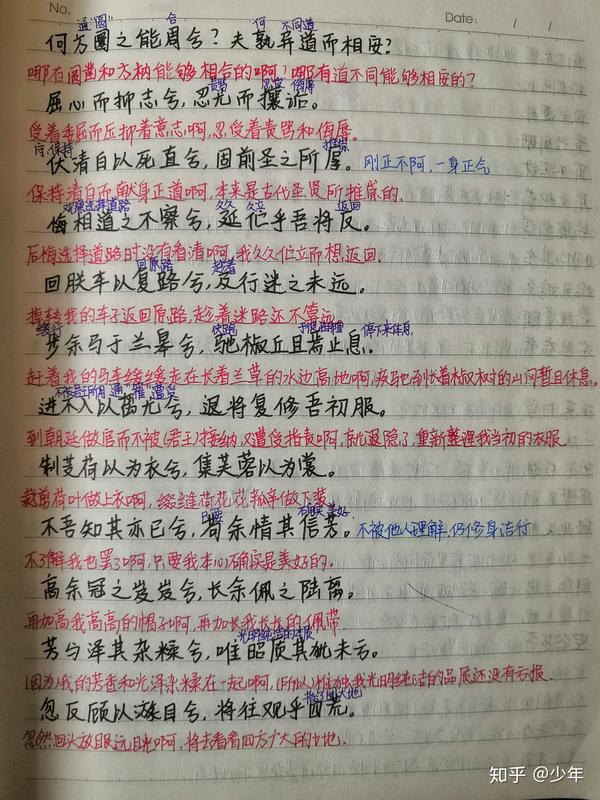 No.
Date: / /
通“圆” 合 何 不同道
何方圜之能周兮？夫孰异道而相安？
哪有圆凿和方枘能够相合的啊？哪有道不同能够相安的？
责骂 忍受 侮辱
屈心而抑志兮，忍尤而攘诟。
受着委屈而压抑着意志啊，忍受着责骂和侮辱。
守，保持 推崇
伏清白以死直兮，固前圣之所厚。刚正不阿，一身正气
保持清白而献身正道啊，本来是古代圣贤所推崇的。
观察选择道路 久久 伫立 返回
悔相道之不察兮，延伫乎吾将反。
后悔选择道路时没有看清啊，我久久伫立而想返回
回原路 趁着
回朕车以复路兮，及行迷之未远。
掉转我的车子返回原路，趁着迷路还不算远
缓行 快跑 于此 停下来休息
步余马于兰皋兮，驰椒丘且焉止息。
赶着我的马车缓缓走在长着兰草的水边高地啊，疾驰到长着椒树的山冈暂且休息。
不被君王所用 通“罹”遭受
进不入以离尤兮，退将复修吾初服。
到朝廷做官而不被(君王)接纳，又遭受指责啊，就退隐了，重新整理我当初的衣服
制芰荷以为衣兮，集芙蓉以为裳。
裁剪荷叶做上衣啊，缀缝荷花花瓣来做下裳
只要 美好
不吾知其亦已兮，苟余情其信芳。不被他人理解，仍修身洁行
不了解我也罢了啊，只要我本心确实是美好的.
高余冠之岌岌兮，长余佩之陆离。
再加高我高高的帽子啊，再加长我长长的佩带
光明纯洁的本质
芳与泽其杂糅兮，唯昭质其犹未亏。
(因为)我的芳香和光泽杂糅在一起啊，(所以)唯独我光明纯洁的品质还没有亏损.
忽反顾以游目兮，将往观乎四荒。
忽然回头放眼远目光啊，将去看看四方广大的土地.
知乎 @少年